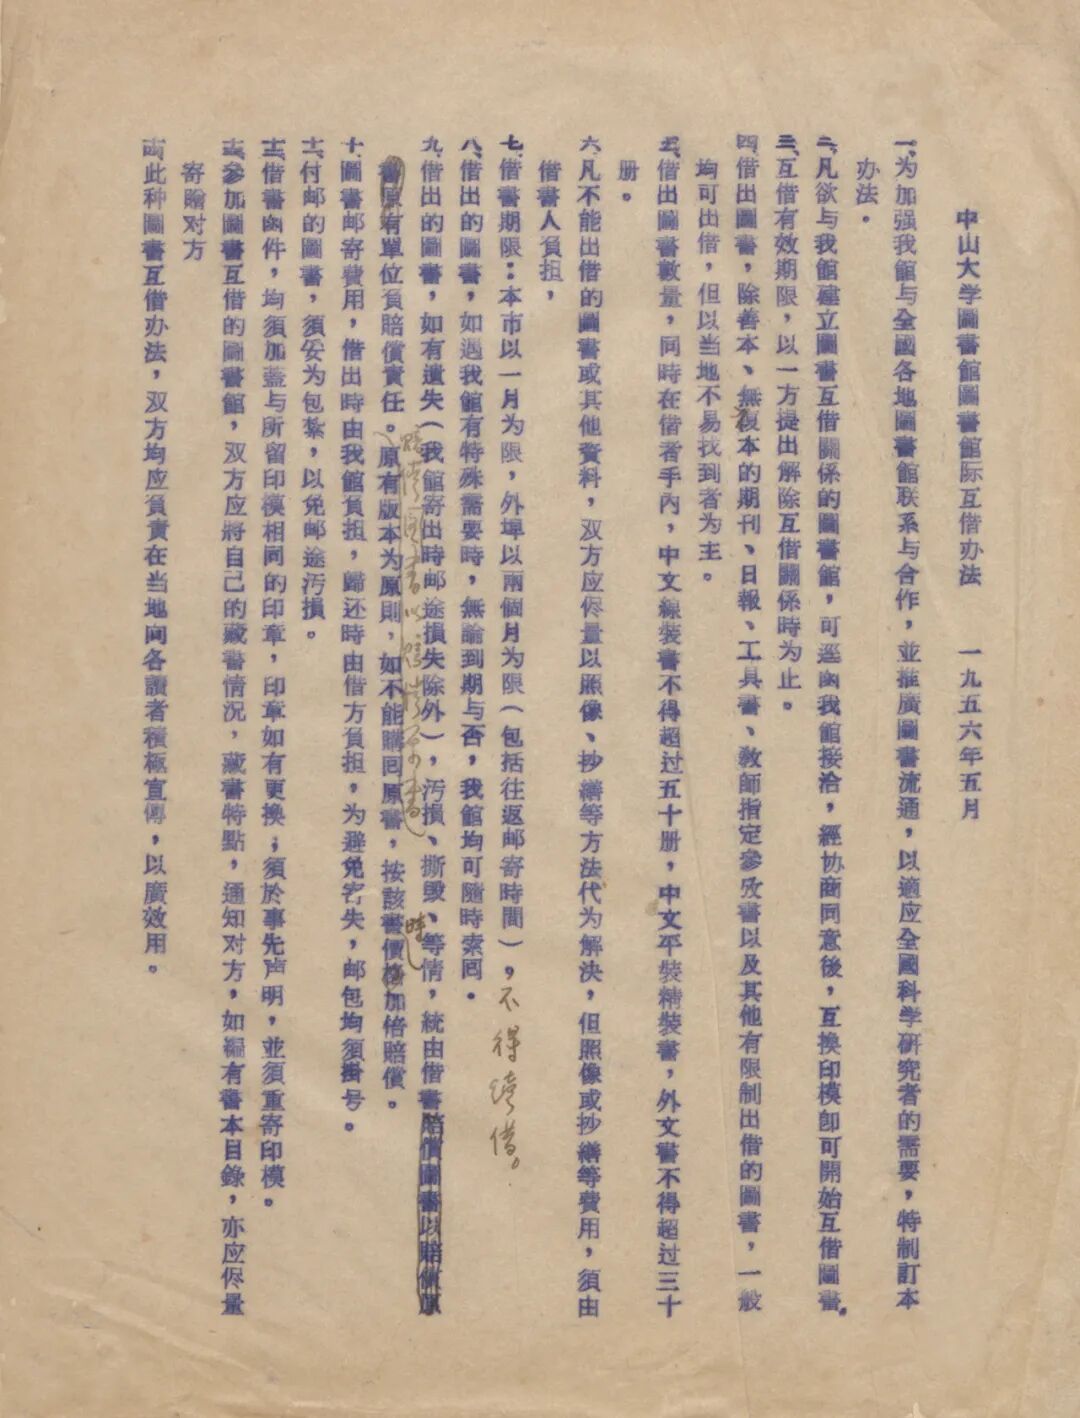 中山大学圖書館圖書館际互借办法　一九五六年五月
一、为加强我館与全國各地圖書館联系与合作，並推廣圖書流通，以適应全國科学研究者的需要，特制訂本
办法。
二、凡欲与我館建立圖書互借關係的圖書館，可逕函我館接洽，經协商同意後，互换印模卽可開始互借圖書。
三、互借有效期限，以一方提出解除互借關係時为止。
四、借出圖書，除善本、無復本的期刊、日報、工具書、教師指定參攷書以及其他有限制出借的圖書，一般
均可出借，但以当地不易找到者为主。
五、借出圖書數量，同時在借者手內，中文線装書不得超过五十册，中文平裝精裝書，外文書不得超过三十
册。
六、凡不能出借的圖書或其他資料，双方应侭量以照像、抄繕等方法代为解決，但照像或抄繕等費用，須由
借書人負担，
七、借書期限：本市以一月为限，外埠以兩個月为限（包括往返邮寄時間），不得續借。
八、借出的圖書，如遇我館有特殊需要時，無論到期与否，我館均可隨時索回。
九、借出的圖書，如有遺失（我館寄出時邮途損失除外），汚損、撕毀、等情，統由借書賠償圖書以賠償原
時
賠償圖書以賠償原書
書原有單位負賠償責任。原有版本为原則，如不能購回原書，按該書價格加倍賠償。
十、圖書邮寄費用，借出時由我館負担，歸还時由借方負担，为避免寄失，邮包均須掛号。
十一、付邮的圖書，須妥为包紮，以免邮途汚損。
十二、借書函件，均須加蓋与所留印模相同的印章，印章如有更换；須於事先声明，並須重寄印模。
十三、參加圖書互借的圖書館，双方应將自己的藏書情況，藏書特點，通知对方，如編有書本目錄，亦应侭量
寄贈对方
十四、此种圖書互借办法，双方均应負責在当地向各讀者積極宣傳，以廣效用。